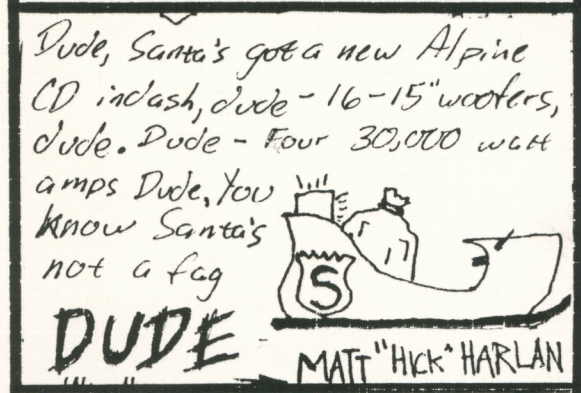 Dude, Santa's got a new Alpine
CD indash, dude - 16-15" woofers,
dude. Dude - Four 30,000 watt
amps Dude, You
know Santa's
not a fag
DUDE
S
MATT "HICK" HARLAN